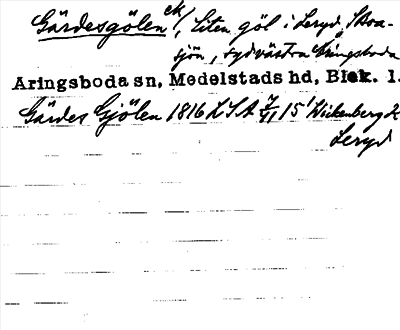 Gärdesgölen ek/, liten göl i Leryd, Skoa-
sjön, sydvästra Åringsboda
Aringsboda sn, Medelstads hd, Blek. l.
Gärdes Gjölen 1816 LSA 15 Wickenberg &
Leryd